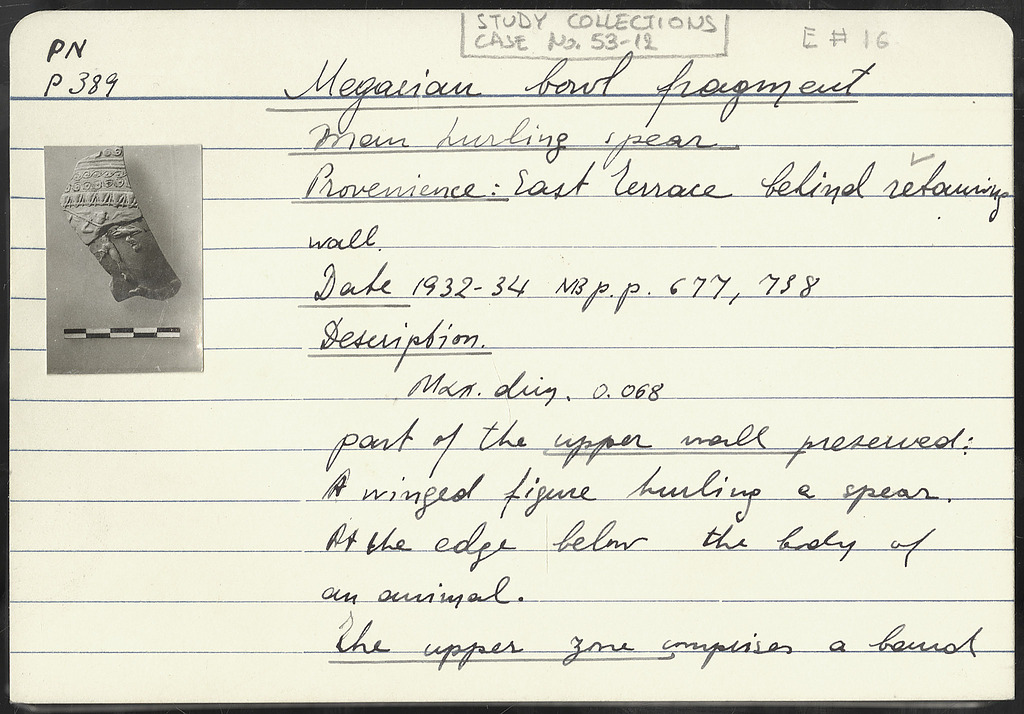 STUDY COLLECTIONS
CASE No. 53-12
E # 16
PN
P 389
Megarian bowl fragment
Man hurling spear.
Provenience: East Terrace behind retaining
wall.
Date 1932-34 NB p.p. 677, 738
Description.
Max. dim. 0.068
part of the upper wall preserved:
A winged figure hurling a spear.
At the edge below the body of
an animal.
The upper zone comprises a band